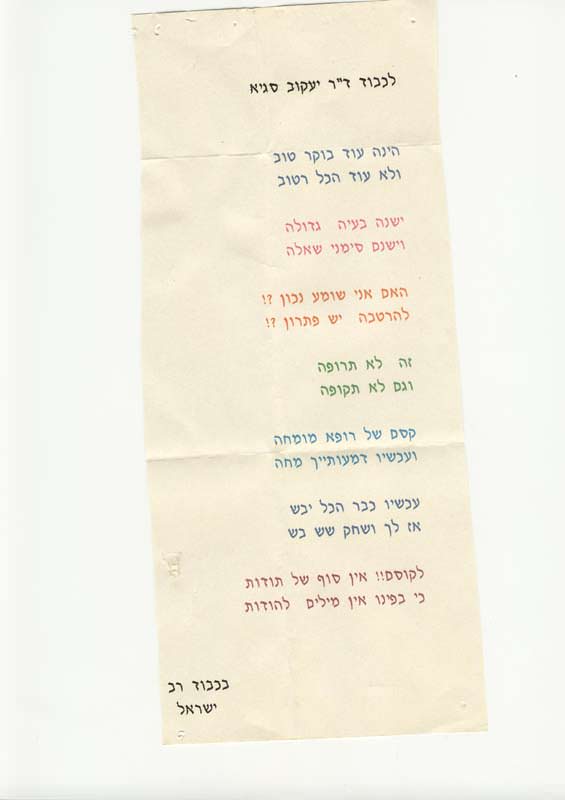 לכבוד ד"ר יעקוב סגיא
הינה עוד בוקר טוב
ולא עוד הכל רטוב
ישנה בעיה גדולה
וישנם סימני שאלה
האם אני שומע נכון ?!
להרטבה יש פתרון ?!
זה לא תרופה
וגם לא תקופה
קסם של רופא מומחה
ועכשיו דמעותייך מחה
עכשיו כבר הכל יבש
אז לך ושחק שש בש
לקוסם!! אין סוף של תודות
כי בפינו אין מילים להודות
בכבוד רב
ישראל